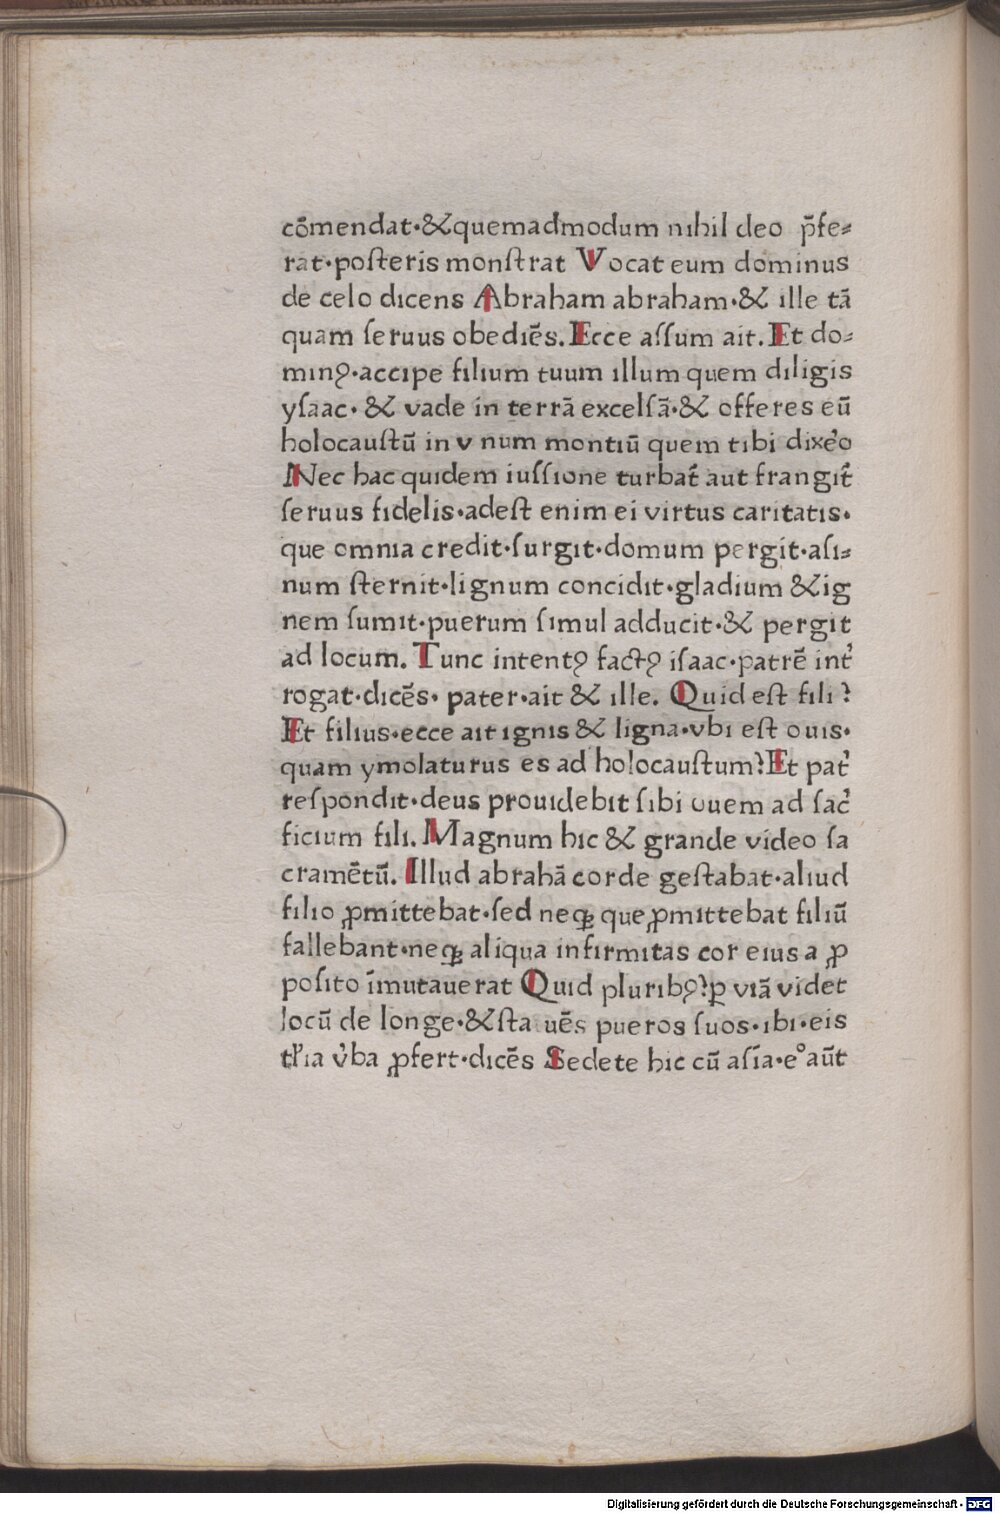 cōmendat·&quemadmodum nihil deo p̄fe⸗
rat·poſteris monſtrat Vocat eum dominus
de celo dicens Abraham abraham·& ille tā
quam ſeruus obediēs. Ecce aſſum ait. Et do⸗
minꝰ·accipe filium tuum illum quem diligis
yſaac· & vade in terrā excelſā·& offeres eū
holocauſtū in v num montiū quem tibi dixe᾿o
Nec hac quidem iuſſione turbat᾿ aut frangit᾿
ſeruus fidelis·adeſt enim ei virtus caritatis·
que omnia credit·ſurgit·domum pergit·aſi⸗
num ſternit·lignum concidit·gladium &ig
nem ſumit·puerum ſimul adducit·& pergit
ad locum. Tunc intentꝰ factꝰ iſaac·patrē int᾿
rogat·dicēs· pater·ait & ille. Quid eſt fili?
Et filius·ecce ait ignis & ligna·vbi eſt ouis·
quam ymolaturus es ad holocauſtum? Et pat᾿
reſpondit·deus prouidebit ſibi ouem ad ſac᾿
ficium fili. Magnum hic & grande video ſa
cramētū. Illud abrahā corde geſtabat·aliud
filio ꝓmittebat·ſed neqꝫ que ꝓmittebat filiū
fallebant·neqꝫ aliqua infirmitas cor eius a ꝓ
poſito īmutauerat Quid pluribꝰ? ꝑ viā videt
locū de longe·&ſta uēs pueros ſuos·ibi·eis
tl᾿ia v᾿ba ꝓfert·dicēs Sedete hic cū aſīa·eº aūt
Digitalisierung gefördert durch die Deutsche Forschungsgemeinschaft · DFG